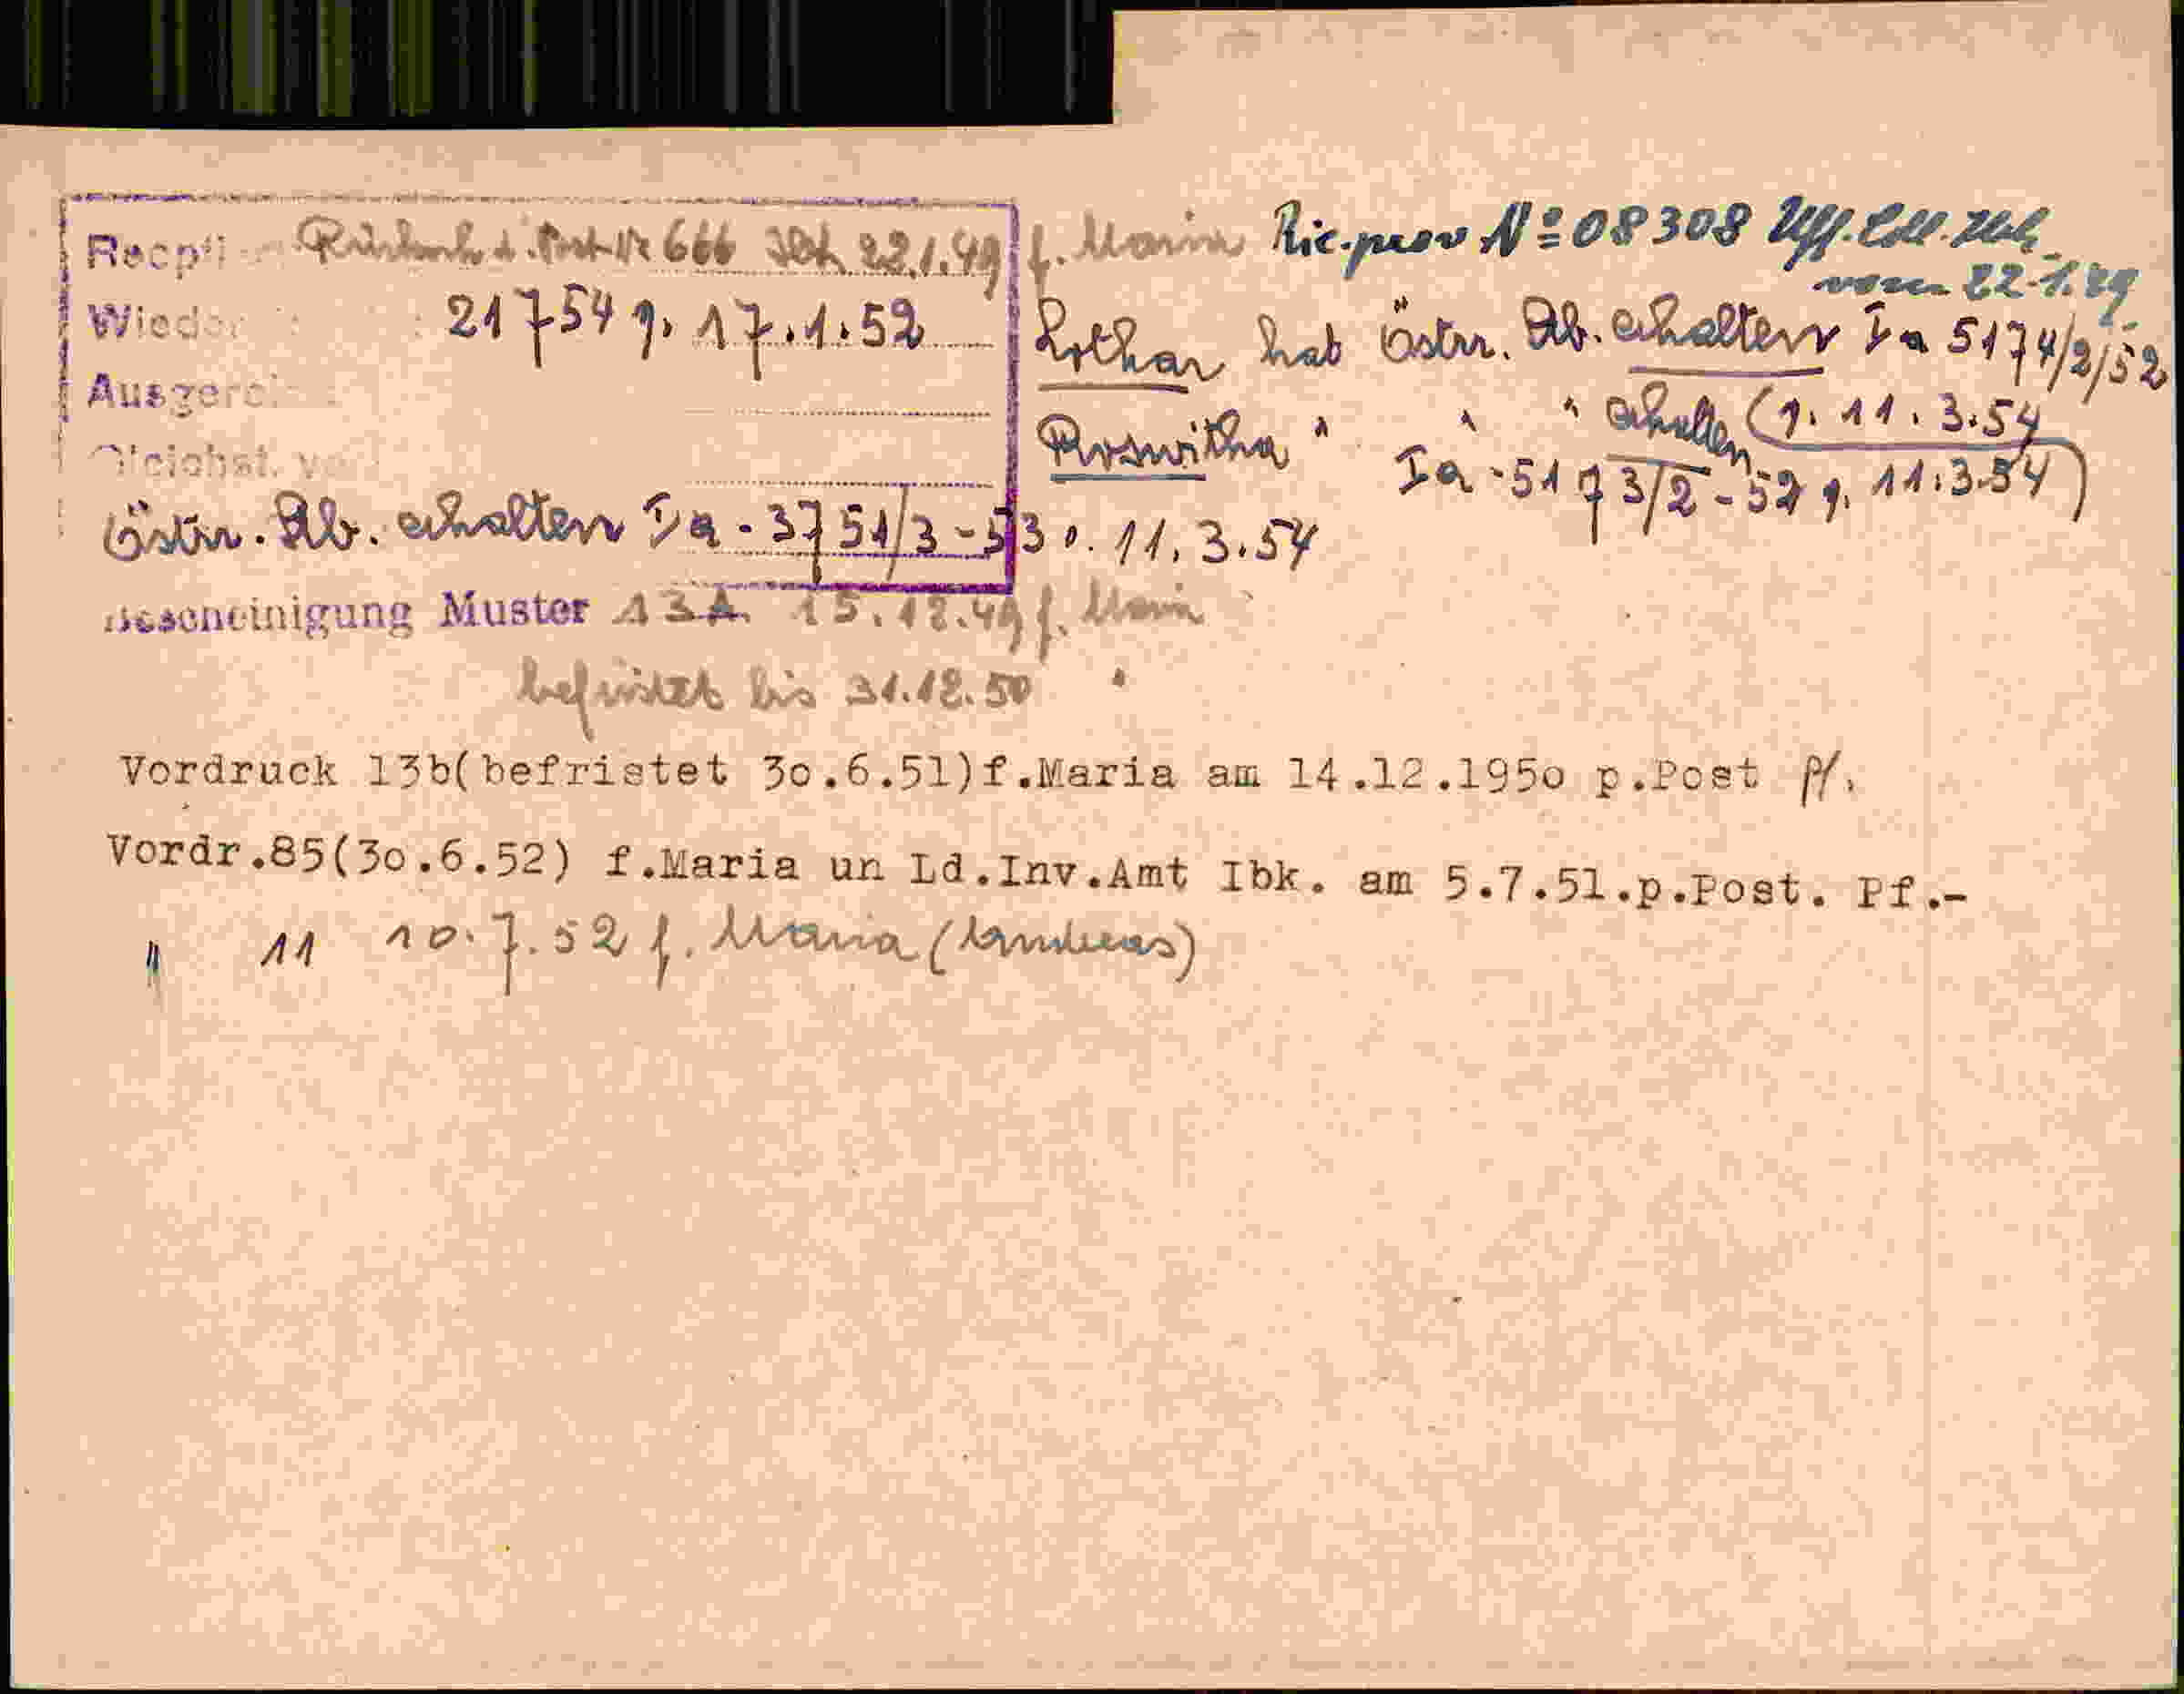 Recpti Rückoh d. Post Nr 666 Ibk 22.1.49 f. Maria
Ric. prov Nº 08308 Uff.
vom 22.1.49
Wieder 21754 g. 17.1.52
Lothar hat Östr. Stb. erhalten Ia 5174/2/52
(g. 11.3.54
Ausgere
Roswitha " " " erhalten
Ia-5173/2-52 g. 11.3.54)
Gleichst. v
Östr. Stb. erhalten Ia-3751/3-53 g. 11.3.54
Bescheinigung Muster 13A 15.12.49 f. Maria
befristet bis 31.12.50 "
Vordruck 13b(befristet 3o.6.51)f.Maria am 14.12.195o p.Post Pf.
Vordr.85(3o.6.52) f.Maria un Ld.Inv.Amt Ibk. am 5.7.51.p.Post. Pf.-
" 11 10.7.52 f. Maria (Andreas)